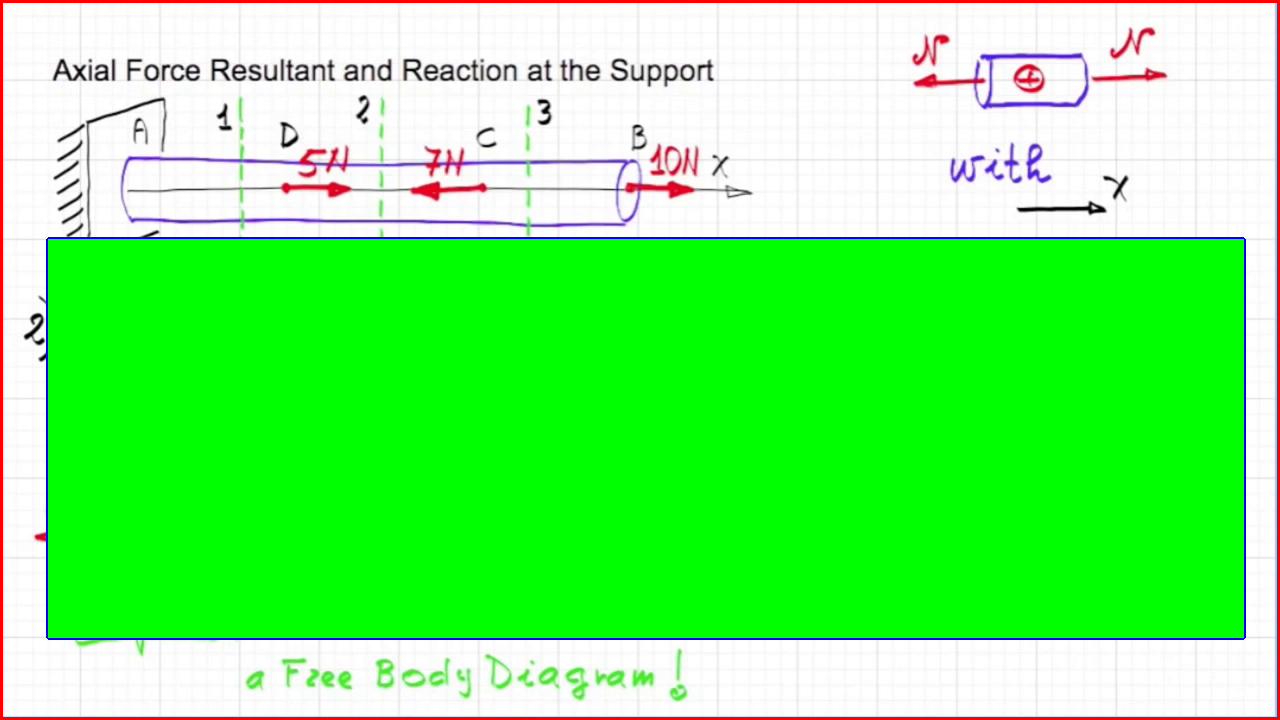 Axial Force Resultant and Reaction at the Support
N N
+
1 2 3
A D C B
5N 7N 10N X
with
X
2
a Free Body Diagram!